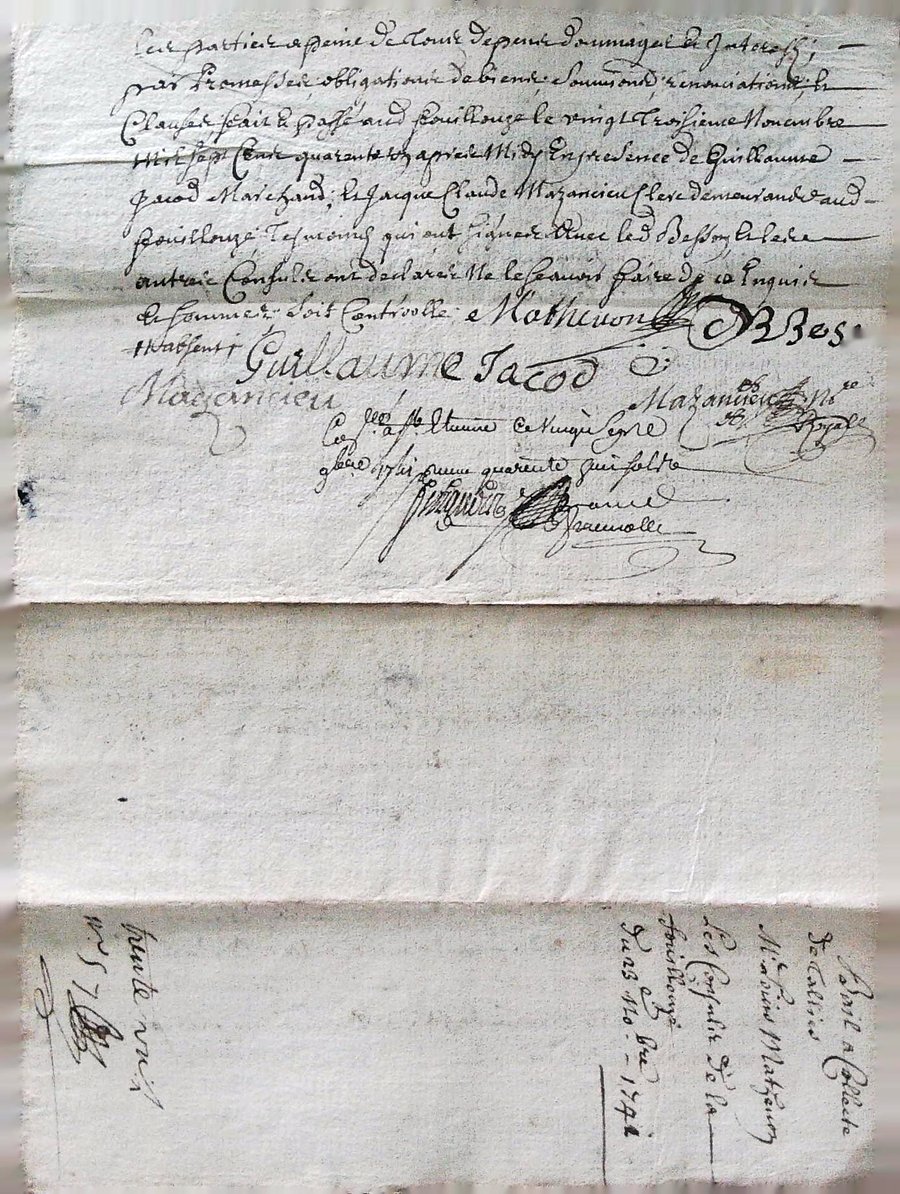 les parties a peine de tous depens dommages & Interests,
par promesses, obligations de biens, soumissions, renonciations, &
Clauses, fait & passé aud fouillouze le vingt Troisieme Novembre
mil sept Cens quarente apres Midy En presence de Guillaume
Jacod Marchand, & Jacque Claude Mazancieu Clerc demeurants aud
fouillouze Tesmoins qui ont signes Avec led Besson & les
autres Consuls ont declares Ne le scavoir faire de ce Enquis
& sommes. soit Controolle Mathevon B Bes
Guillaume Jacod
Mazancieu
Mazancieu No.re
Royal
Con.lle a St. Etienne Ce vingt sept
9bre 1741 quarente sols
Bail a Collecte
de tallies
M.re Louis Mathevon
Les Consuls de la
fouillouze
du 23 No.bre 1741
trente
n.° 57